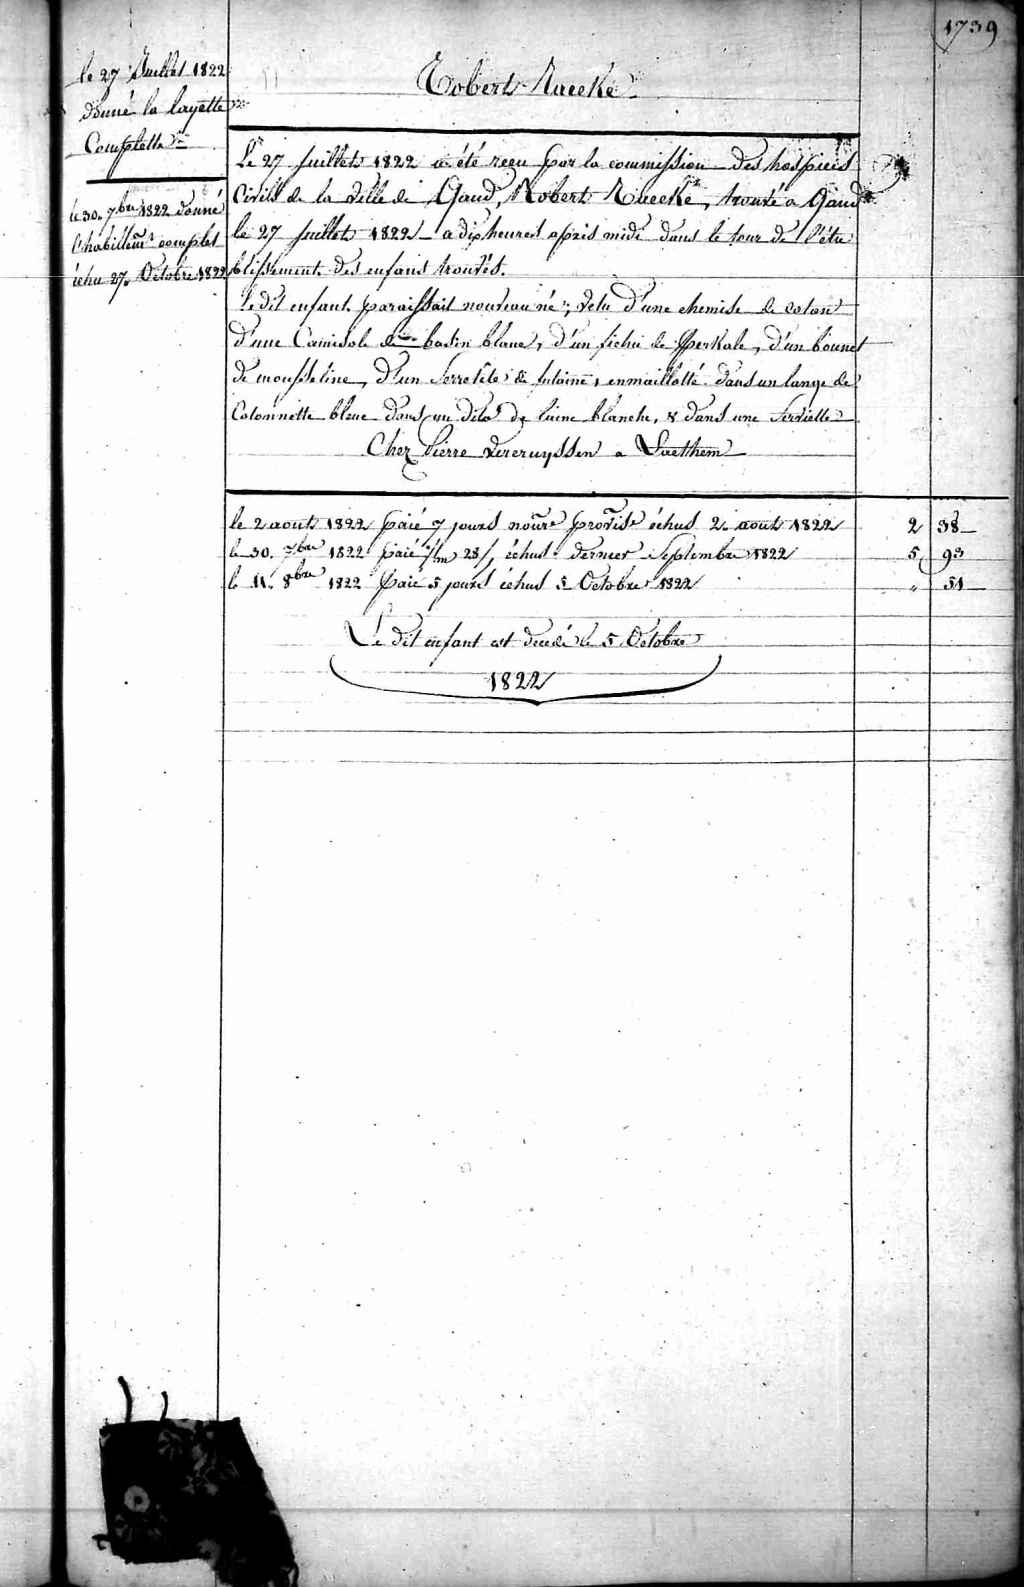 1739
le 27 Juillet 1822
donné la layette
Complette
le 30. 7bre 1822 donné
l'habillemt complet
échu 27. Octobre 1822
Robert Naeeke
Le 27 Juillet 1822 a été reçu par la commission des hospices
Civils de la Ville de Gand, Robert Naeeke, trouvé a Gand
le 27 Juillet 1822 a dix heures après midi dans le tour de l'éta
blissement des enfans trouvés.
Le dit enfant paraissait nouveau né; vetu d'une chemise de coton
d'une Camisole de basin blanc, d'un fichu de Perkale, d'un bonnet
de mousseline, d'un Serretête de futainne, enmaillotté dans un lange de
Cotonnette bleue dans un dito de laine blanche, & dans une Serviette
Chez Pierre Vercruyssen a Laethem
le 2 aout 1822 paié 7 jours nourre provise échus 2. aout 1822 2 38
le 30. 7bre 1822 paié 1/m 28/, échus dernier Septembre 1822 5 93
le 11. 8bre 1822 Paié 5 jours échus 5 Octobre 1822 " 51
Le dit enfant est decedé le 5 Octobre
1822